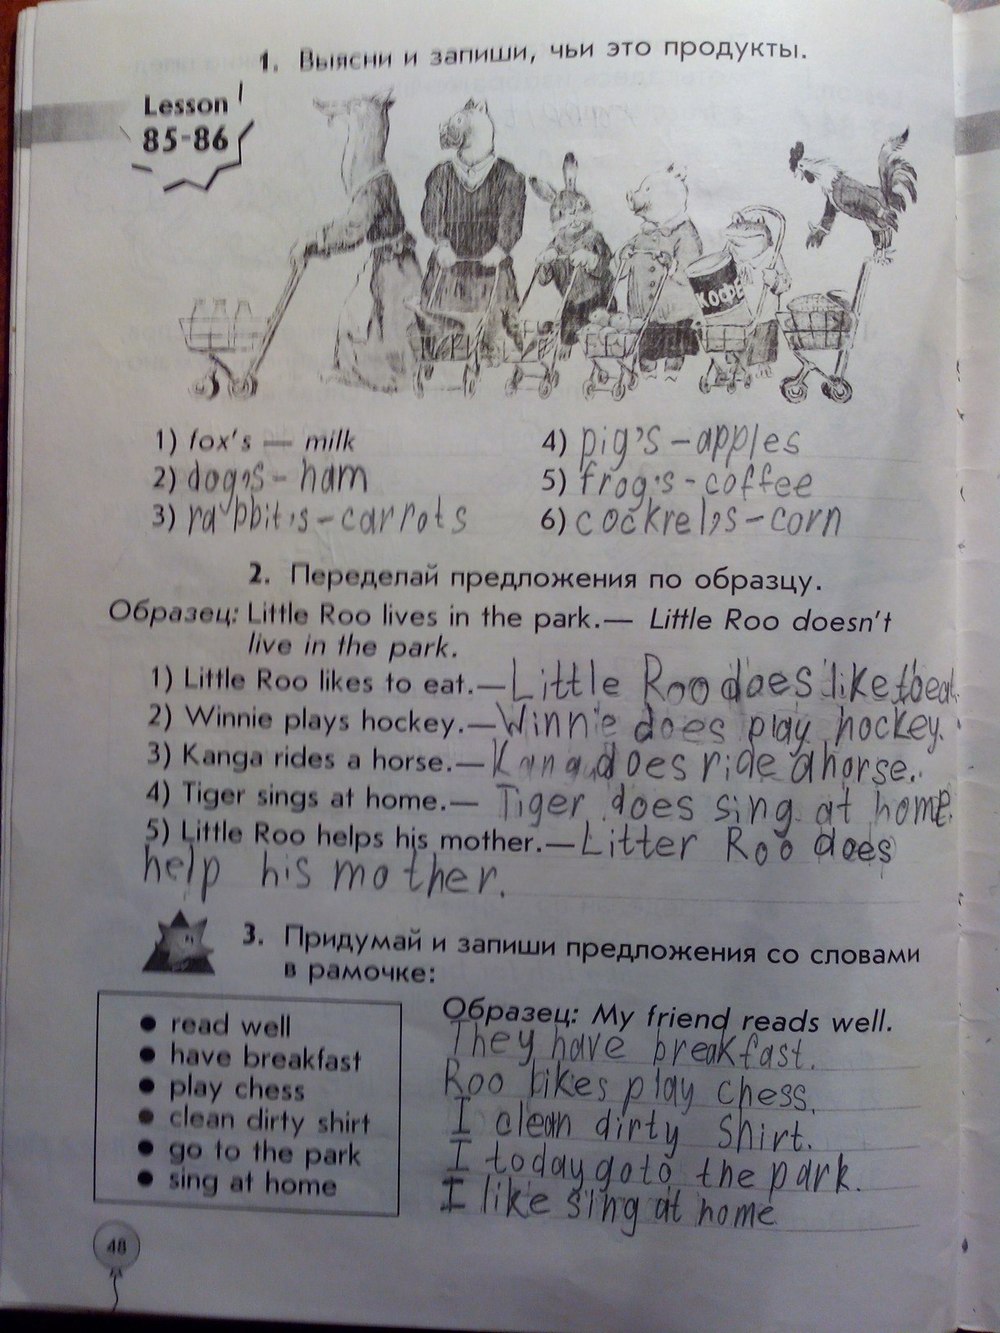 1. Выясни и запиши, чьи это продукты.
Lesson
85-86
КОФЕ
1) fox's — milk
2) dog's - ham
3) rabbit's - carrots
4) pig's - apples
5) frog's - coffee
6) cockrel's - corn
2. Переделай предложения по образцу.
Образец: Little Roo lives in the park.— Little Roo doesn't
live in the park.
1) Little Roo likes to eat.— Little Roo does like to eat.
2) Winnie plays hockey.— Winnie does play hockey.
3) Kanga rides a horse.— Kanga does ride a horse.
4) Tiger sings at home.— Tiger does sing at home.
5) Little Roo helps his mother.— Litter Roo does
help his mother.
3. Придумай и запиши предложения со словами
в рамочке:
• read well
• have breakfast
• play chess
• clean dirty shirt
• go to the park
• sing at home
Образец: My friend reads well.
They have breakfast.
Roo likes play chess.
I clean dirty shirt.
I today go to the park.
I like sing at home
48